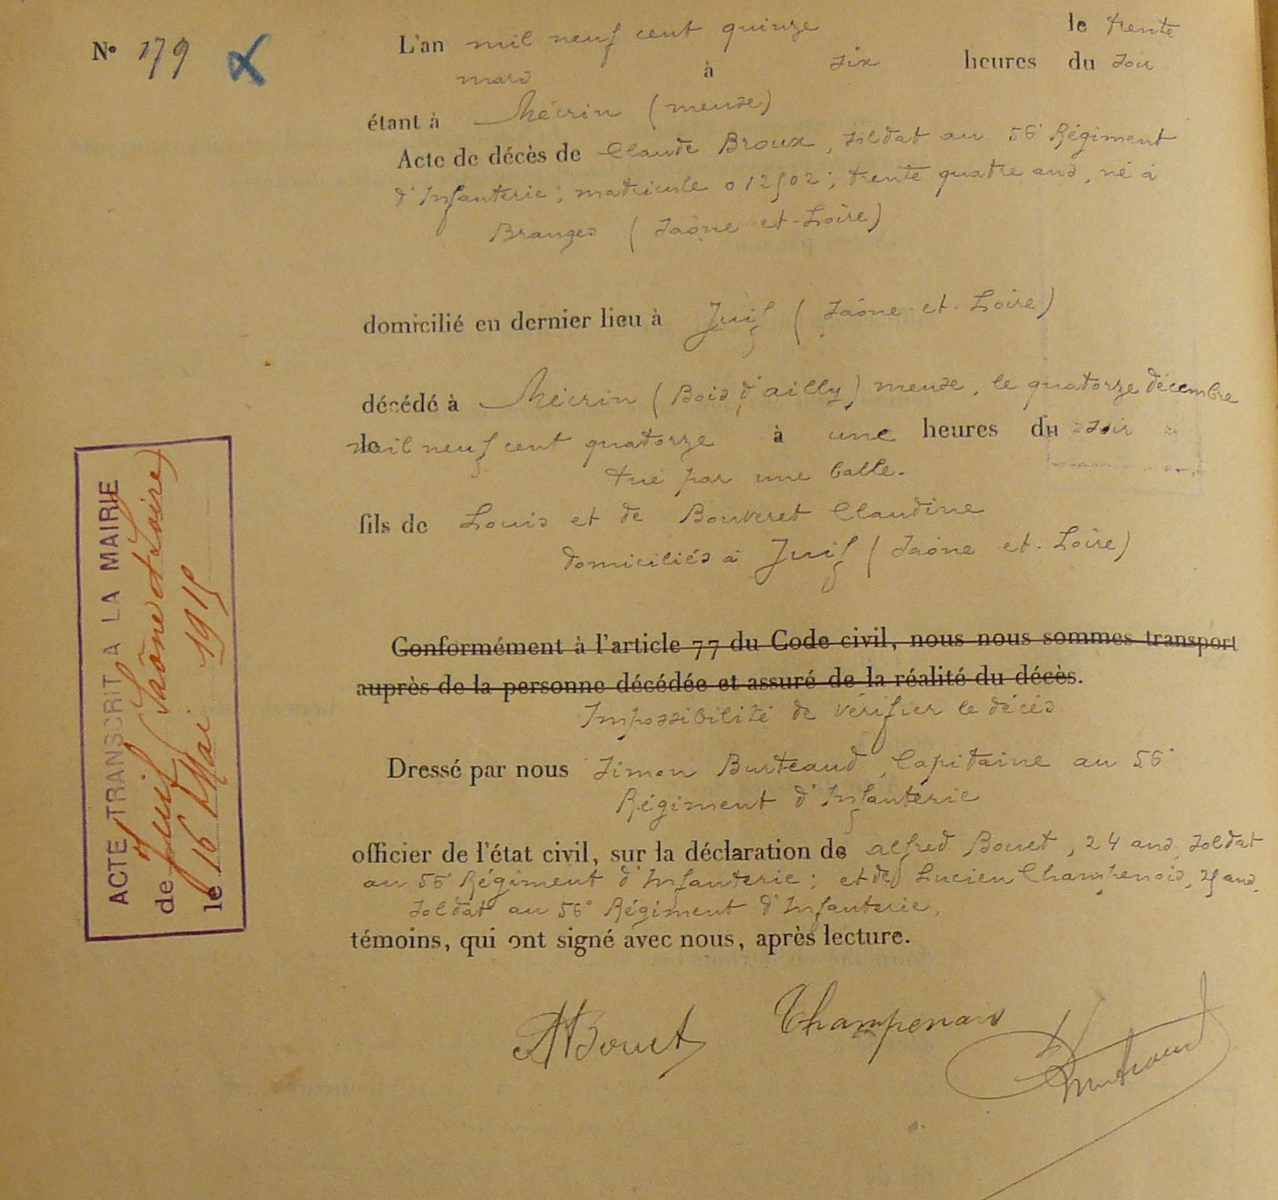 N° 179
L'an mil neuf cent quinze le trente
mars à six heures du soir
étant à Mécrin (meuse)
Acte de décès de Claude Broux, soldat au 56° Régiment
d'Infanterie; matricule 012502; trente quatre ans, né à
Branges (Saône et-Loire)
domicilié en dernier lieu à Juif (Saône et-Loire)
décédé à Mécrin (Bois d'ailly) meuse, le quatorze décembre
mil neuf cent quatorze à une heures du soir
tué par une balle.
fils de Louis et de Bouveret Claudine
domiciliés à Juif (Saône et-Loire)
Conformément à l'article 77 du Code civil, nous nous sommes transport
auprès de la personne décédée et assuré de la réalité du décès.
Impossibilité de vérifier le décès
Dressé par nous Simon Burteaud, Capitaine au 56°
Régiment d'Infanterie
officier de l'état civil, sur la déclaration de alfred Bouet, 24 ans, soldat
au 56° Régiment d'Infanterie; et de Lucien Champenois, ans,
soldat au 56° Régiment d'Infanterie,
témoins, qui ont signé avec nous, après lecture.
ABouet Champenois Burteaud
ACTE TRANSCRIT A LA MAIRIE
de Juif (Saône et Loire)
le 16 Mai 1915